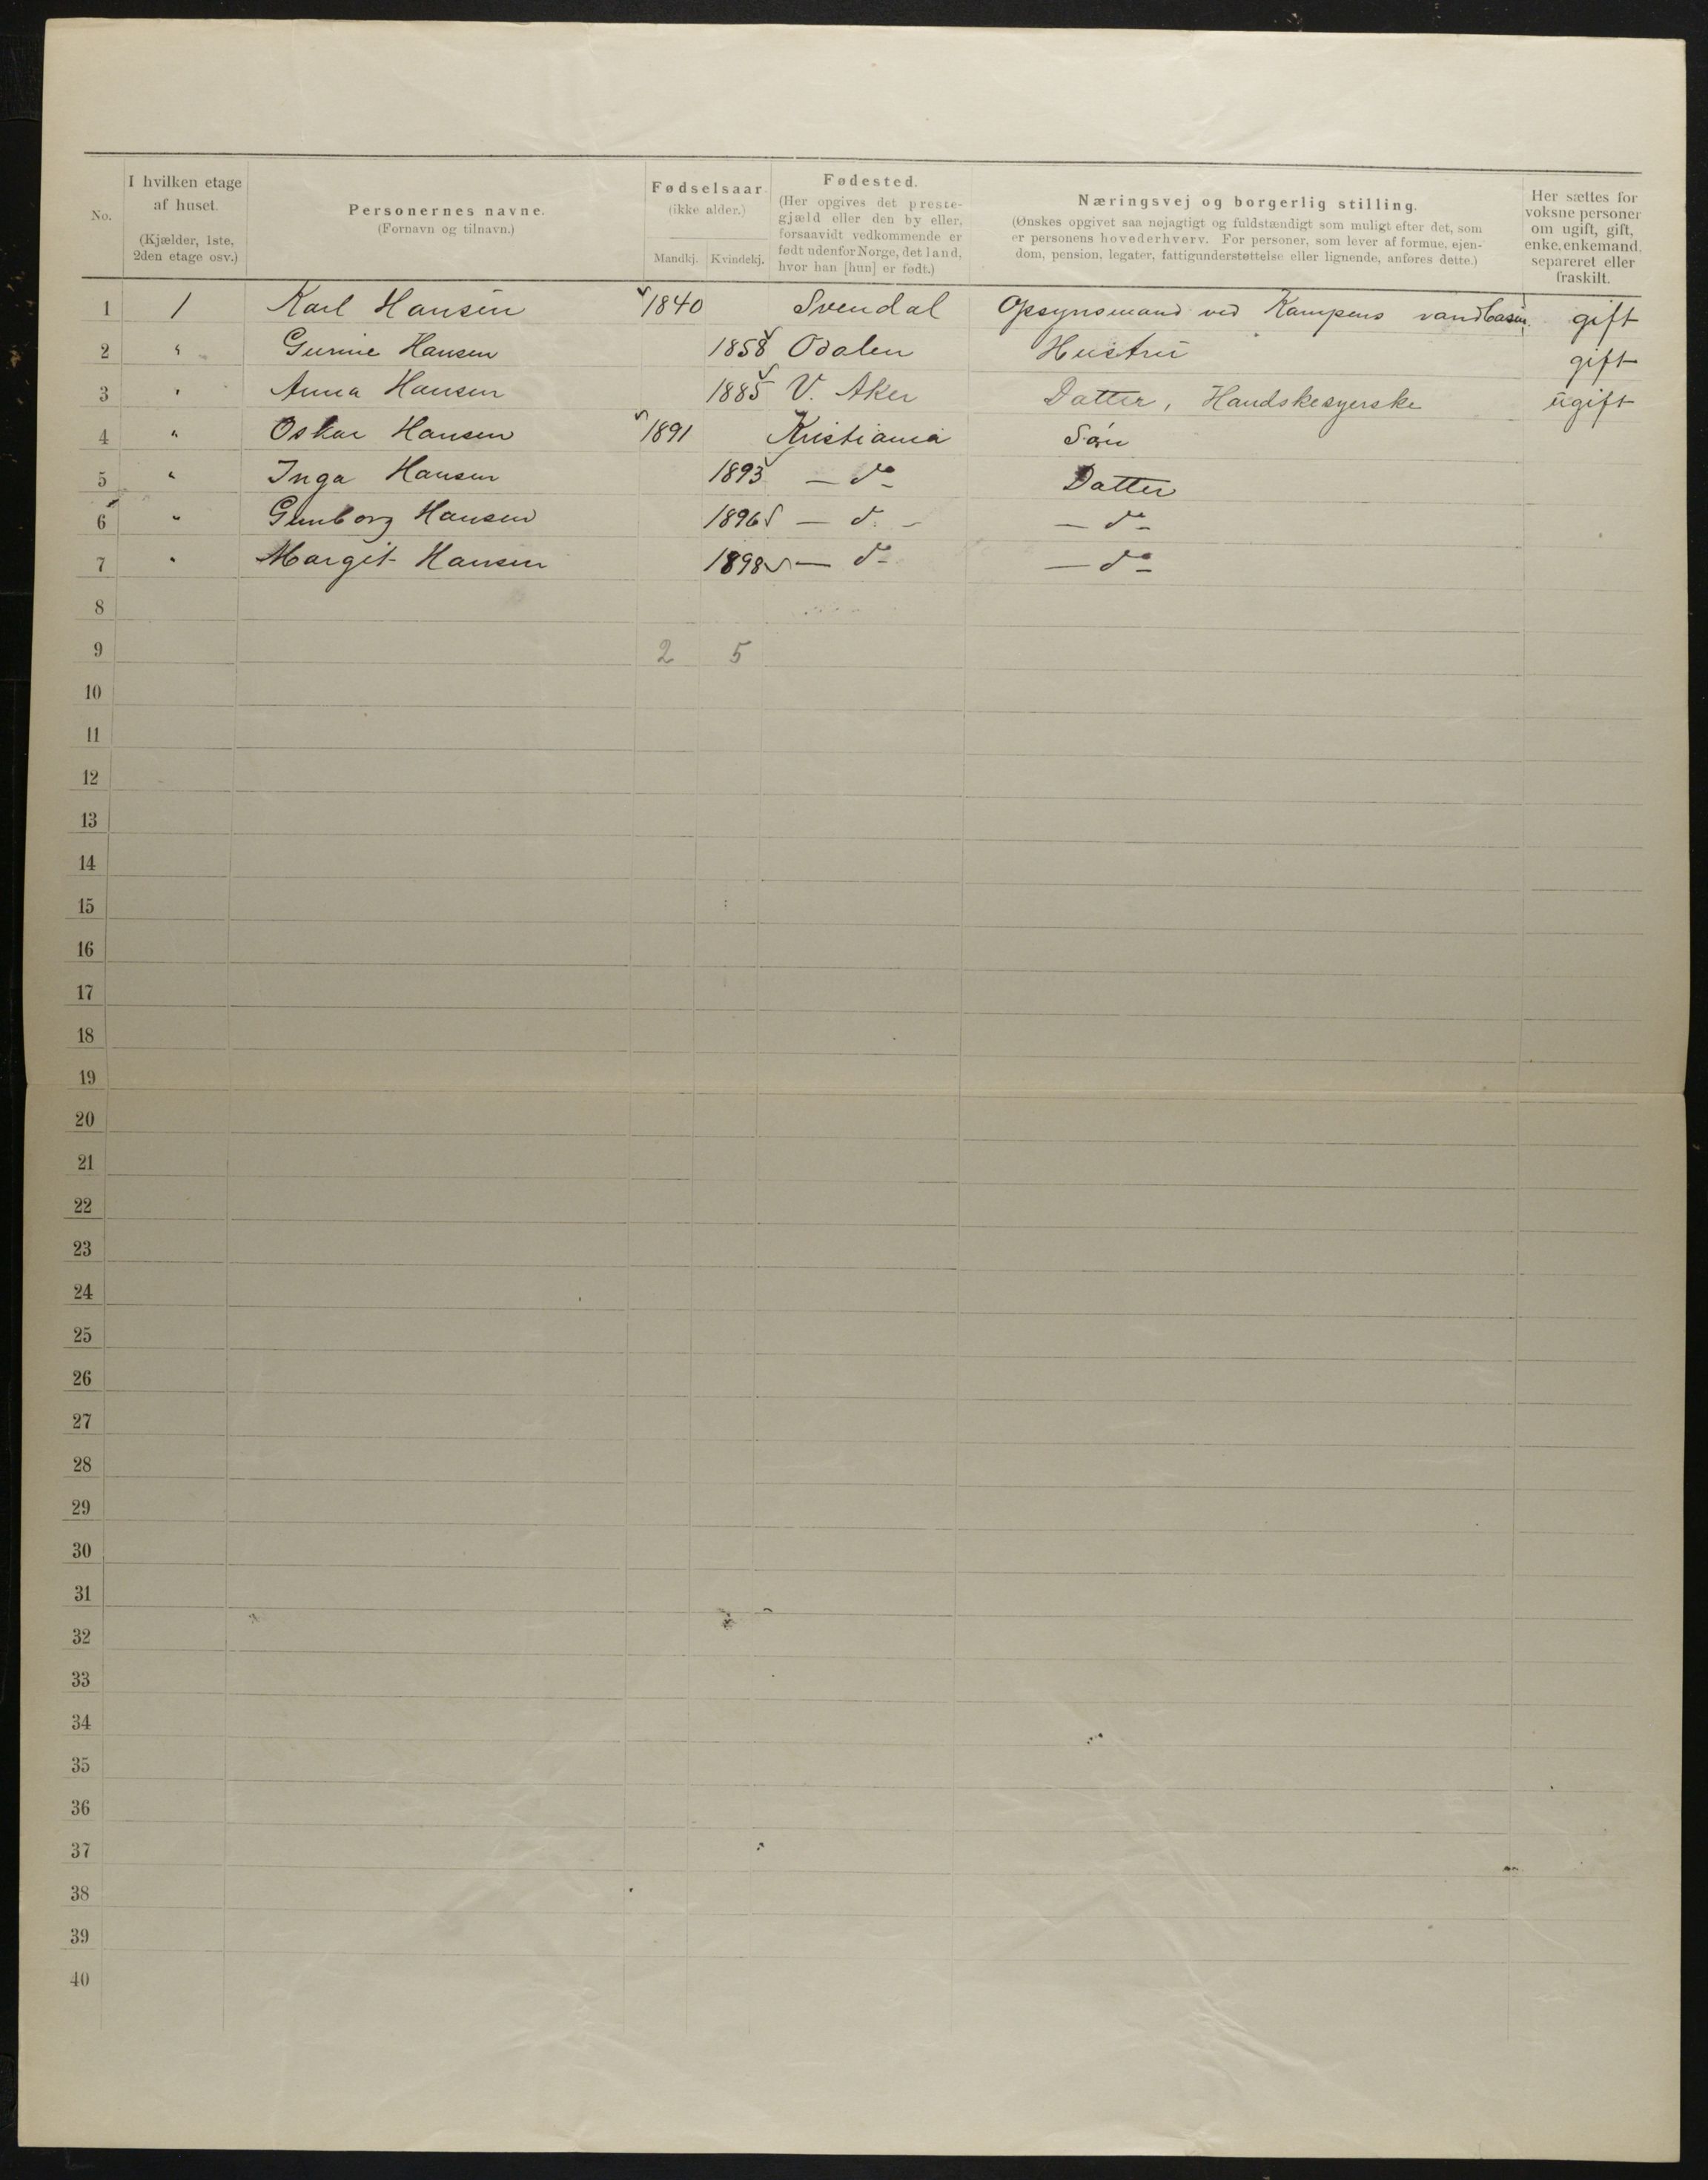 No.
I hvilken etage af huset. (Kjælder, 1ste, 2den etage osv.)
Personernes navne. (Fornavn og tilnavn.)
Fødselsaar (ikke alder.) Mandkj. Kvindekj.
Fødested. (Her opgives det prestegjæld eller den by eller, forsaavidt vedkommende er født udenfor Norge, det land, hvor han [hun] er født.)
Næringsvej og borgerlig stilling.
(Ønskes opgivet saa nøjagtigt og fuldstændigt som muligt efter det, som
er personens hovederhverv. For personer, som lever af formue, ejen-
dom, pension, legater, fattigunderstøttelse eller lignende, anføres dette.)
Her sættes for voksne personer om ugift, gift, enke, enkemand, separeret eller fraskilt.
1 1 Karl Hansen 1840 Svendal Opsynsmand ved Kampens vandbasin. gift
2 " Gunnie Hansen 1858 Odalen Hustru gift
3 " Anna Hansen 1885 V. Aker Datter, Handskesyerske ugift
4 " Oskar Hansen 1891 Kristiania Søn
5 " Inga Hansen 1893 — do — Datter
6 " Gunborg Hansen 1896 — d. — — do —
7 " Margit Hansen 1898 — do — — do —
8
9 2 5
10
11
12
13
14
15
16
17
18
19
20
21
22
23
24
25
26
27
28
29
30
31
32
33
34
35
36
37
38
39
40